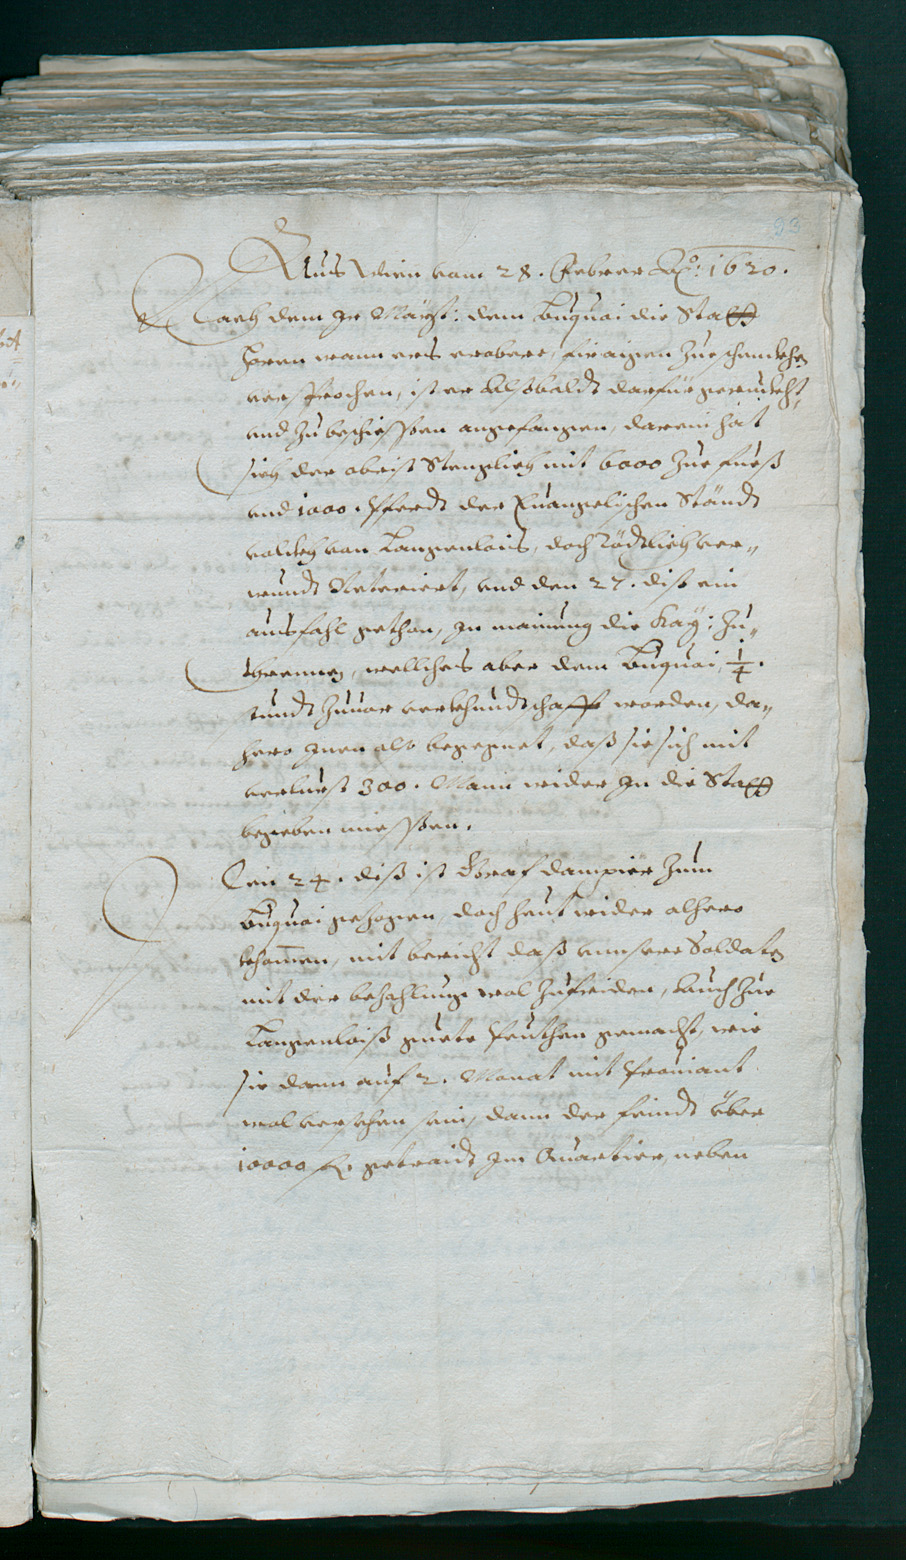 88
Auß Wien vom 28. Febrer Aõ: 1620.
Nach dem Ir Mäyst: dem Buquoi die Statt
Horn wann ers erobere, für aigen zue schenckhen
versprochen, ist er alßbaldt darfür geruckht,
vnd zu beschiessen angefangen, darein hat
sich der obrist Stenzlich mit 6000 zue fueß
vnd 1000. Pferdt der Euangelischen Ständt
volckh von Langenlois, doch Tödtlich ver„
wundt Reteriert, vnd den 27. diß ein
ausfahl gethon, in mainung die Kay: zu„
trennen, wellches aber dem Buquoi, ¼.
stundt zuuor verkhundtschafft worden, da„
hero inen also begegnet, daß sie sich mit
verlurst 300. Mann wider in die Statt
begeben miessen.
Den 24. diß ist Graf Dampier zum
Buquoi gezogen, doch heut wider alhero
khomen, mit bericht daß vnnsere Soldaten
mit der bezahlung wol zufriden, auch zue
Langenloiß guete Peuthen gemacht, wie
sie dann auf 2. Monat mit Profiant
wol versehen sein, dann der feindt über
10000 f. getraidt im Quartier, neben